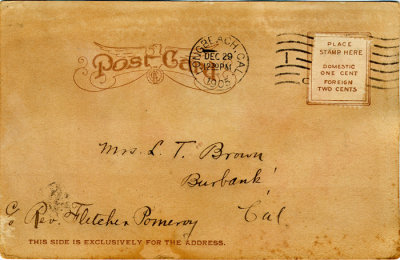 Post Card
LONG BEACH, CAL.
DEC 29
1905
PLACE
STAMP HERE
DOMESTIC
ONE CENT
FOREIGN
TWO CENTS
Mrs. L. T. Brown
Burbank
c/o Rev. Fletcher Pomeroy Cal
THIS SIDE IS EXCLUSIVELY FOR THE ADDRESS.